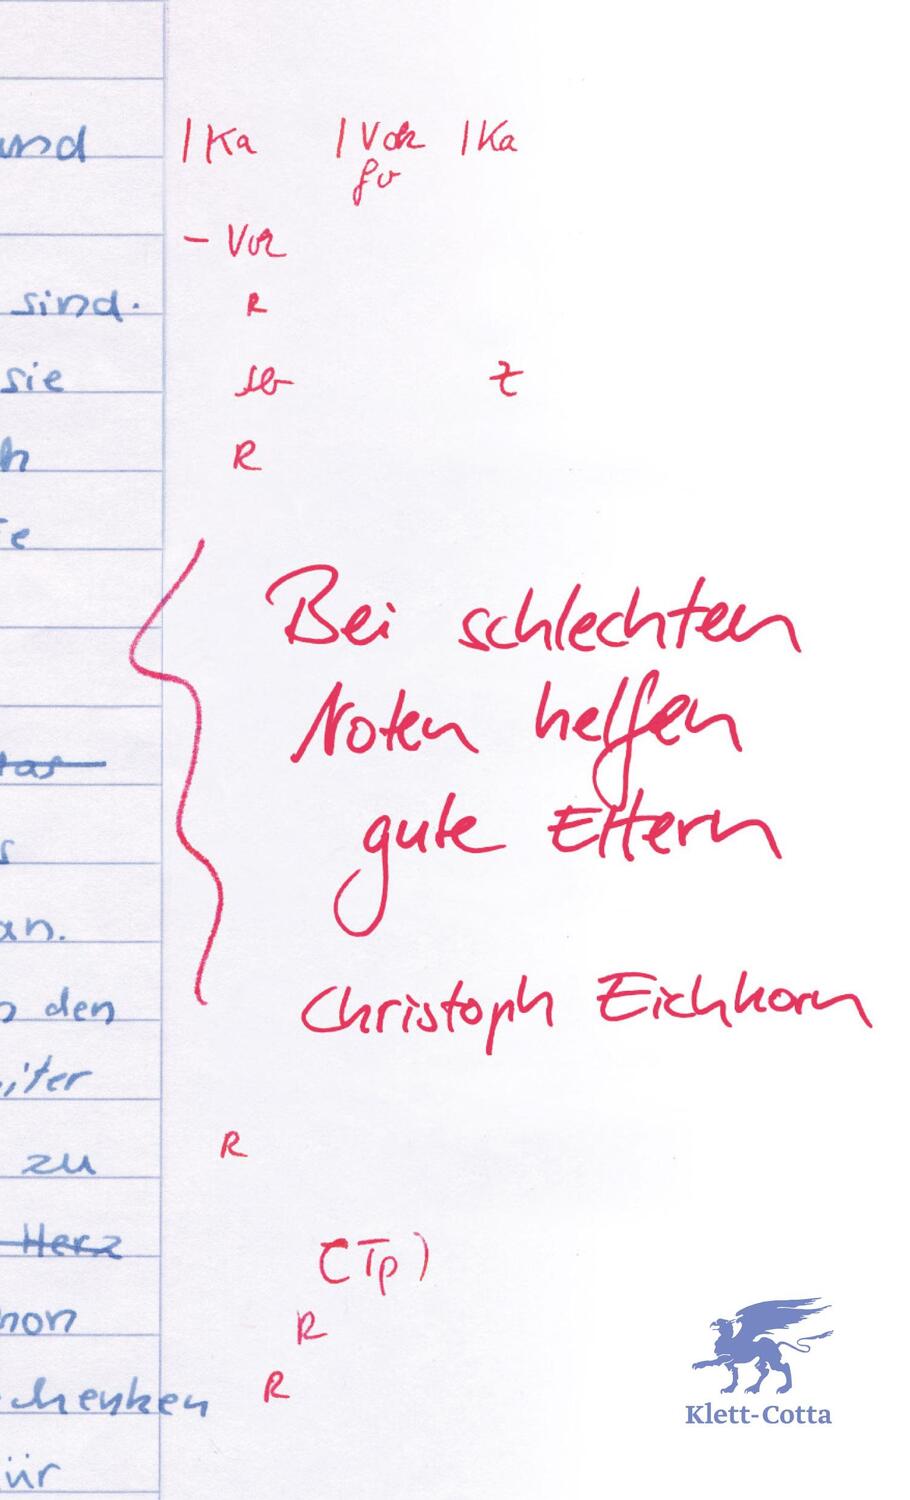 und |Ka |Vok |Ka
fv
- Vok
sind. R
sie sb Z
R
Bei schlechten
Noten helfen
gute Eltern
an.
Christoph Eichhorn
den
zu R
Herz
(Tp)
R
chenken R
ür
Klett-Cotta